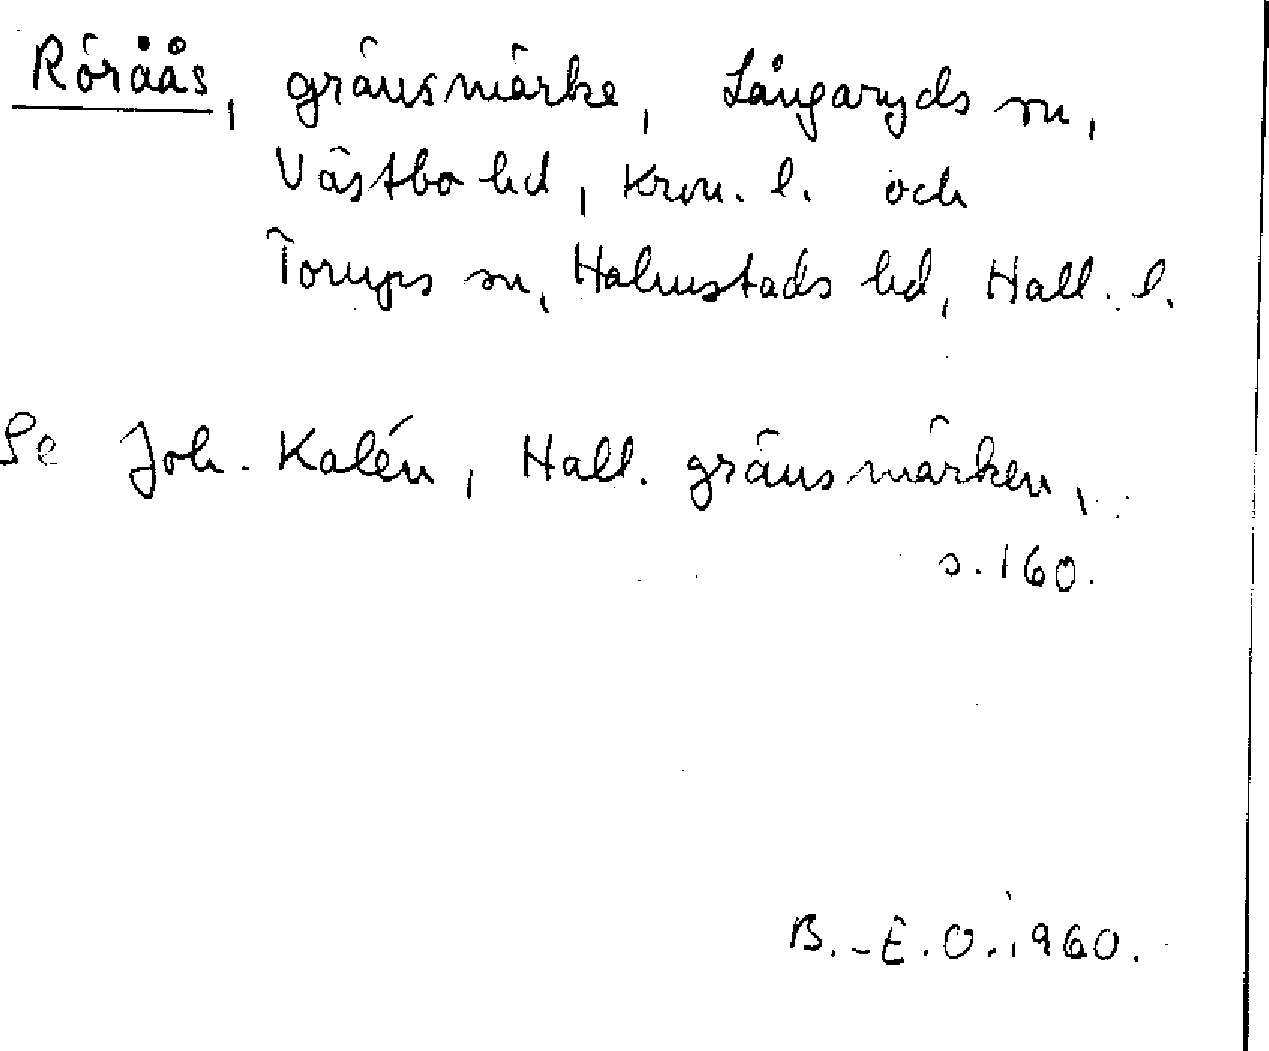 Röråås, gränsmärke, Långaryds sn,
Västbo hd, Kron. l. och
Torups sn, Halmstads hd, Hall. l.
Se Joh. Kalén, Hall. gränsmärken,
s. 160.
B.-E.O. 1960.